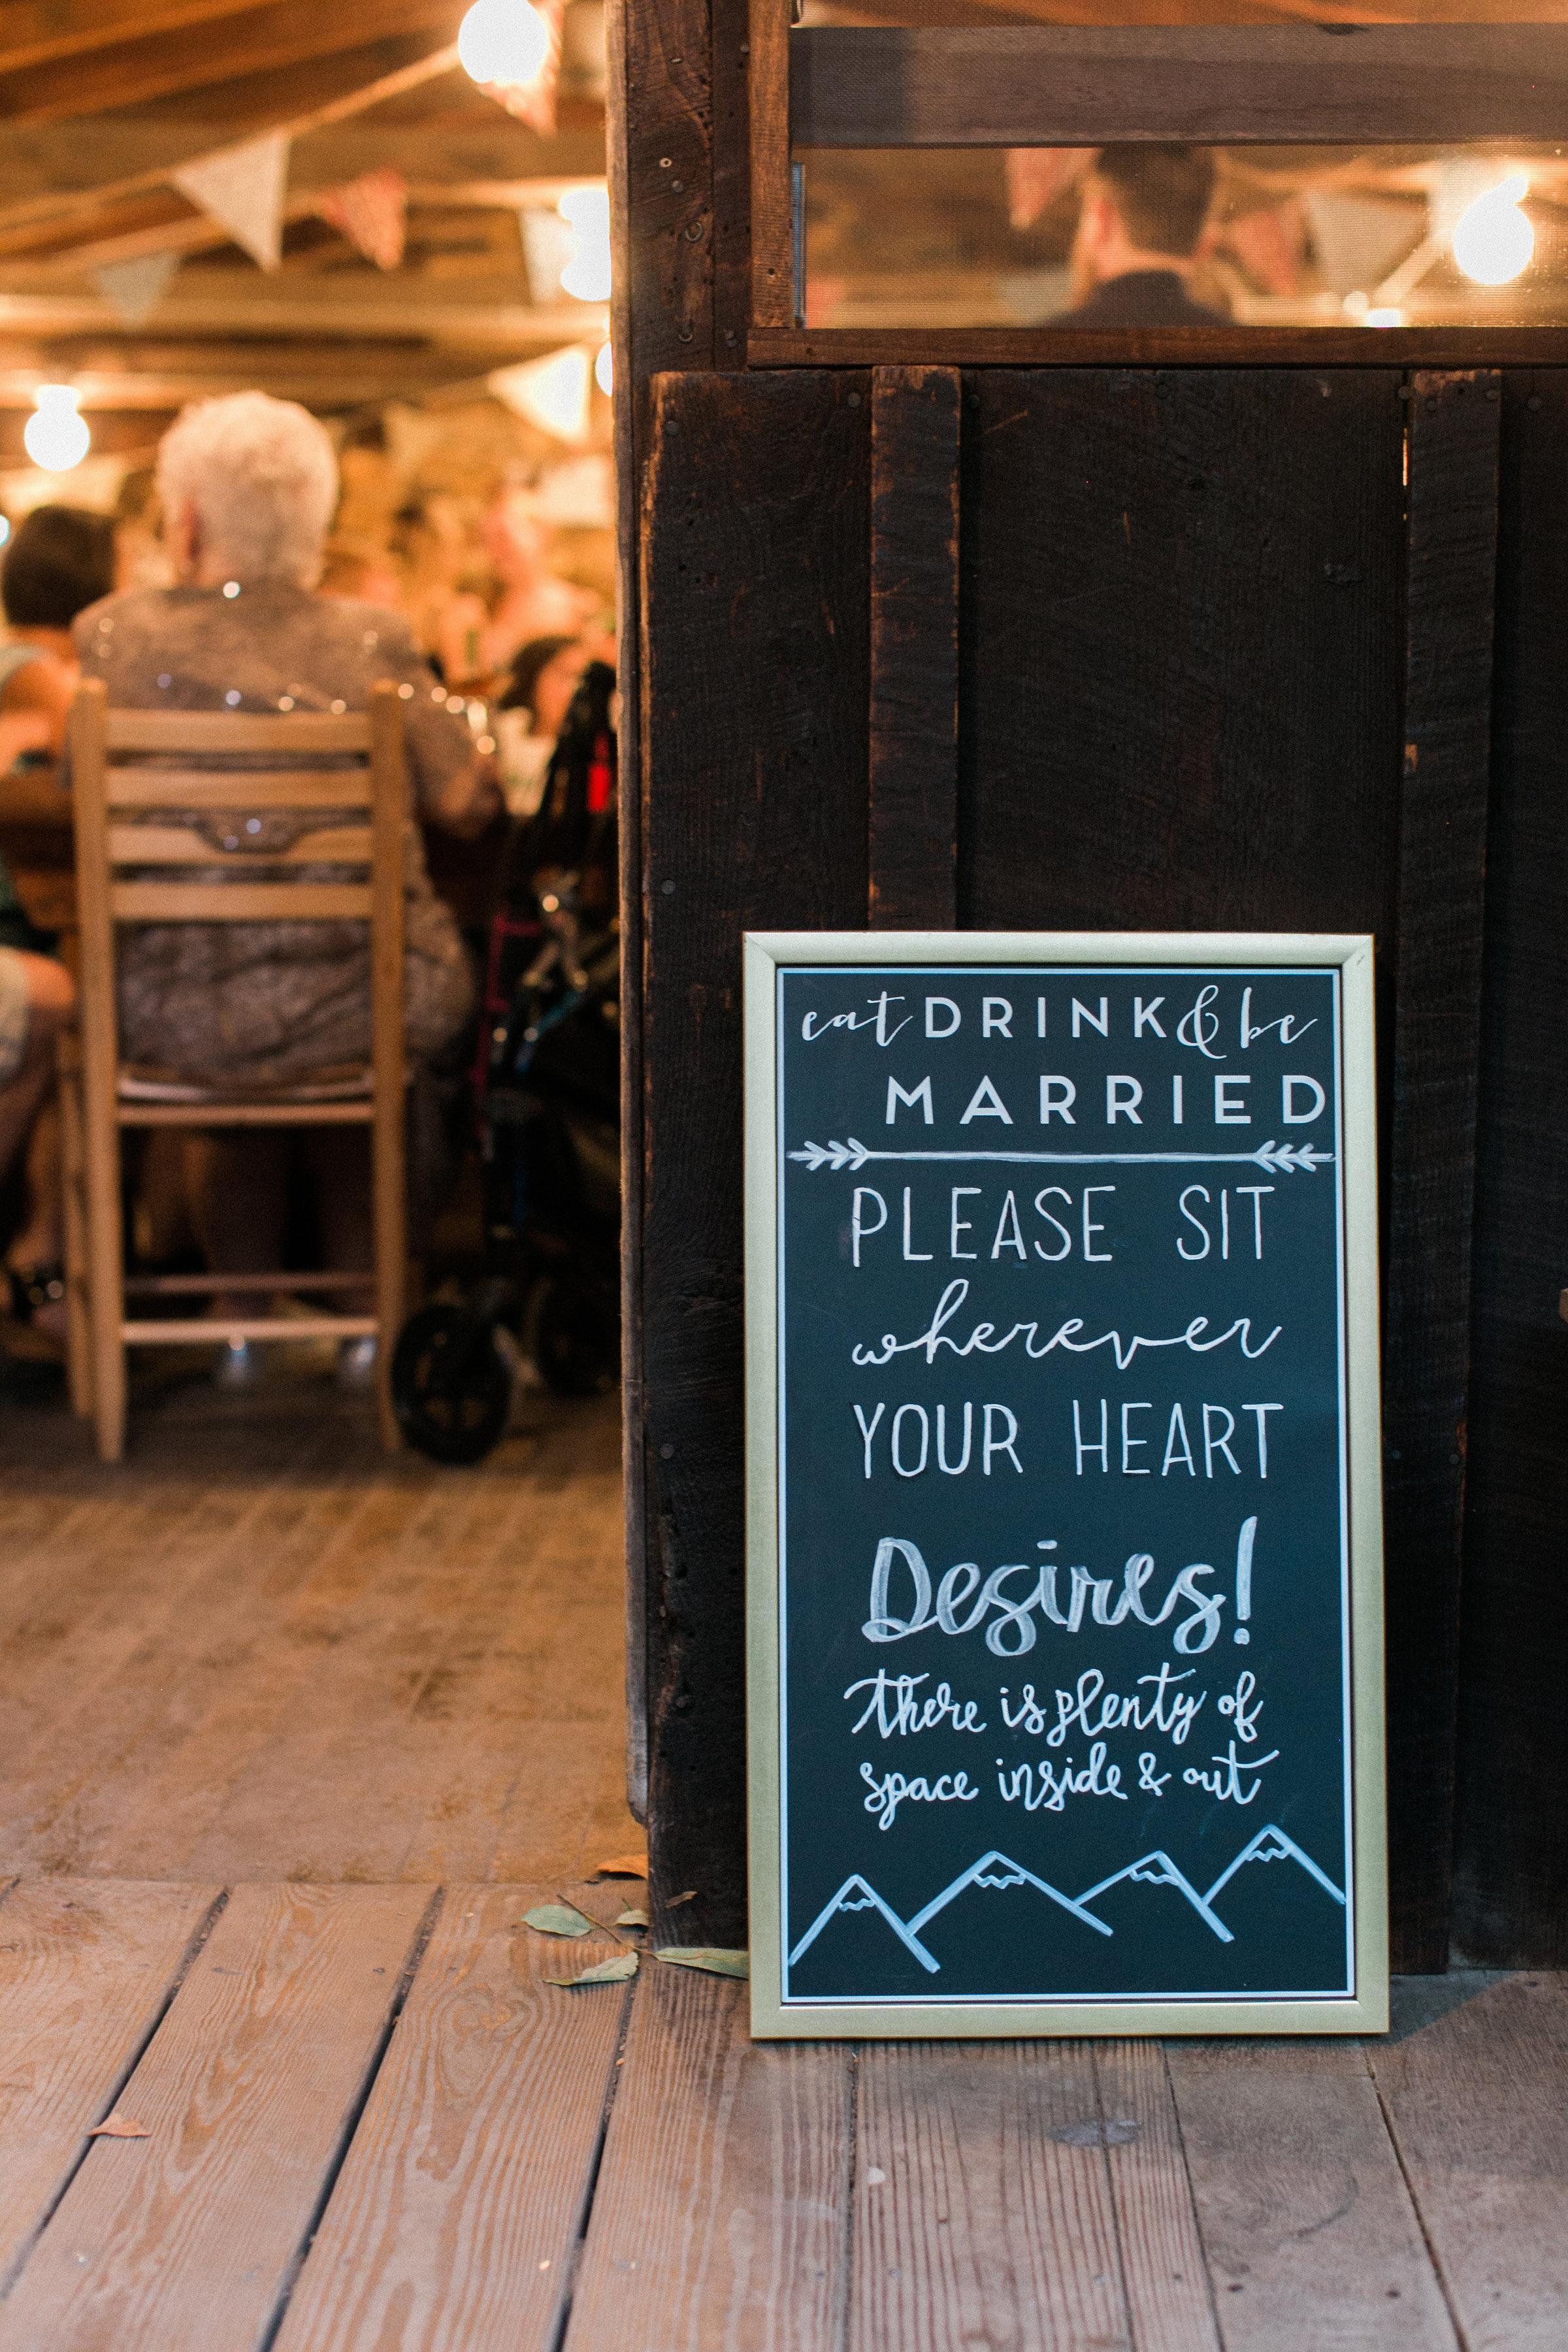 eat DRINK & be
MARRIED
PLEASE SIT
wherever
YOUR HEART
Desires!
there is plenty of
space inside & out